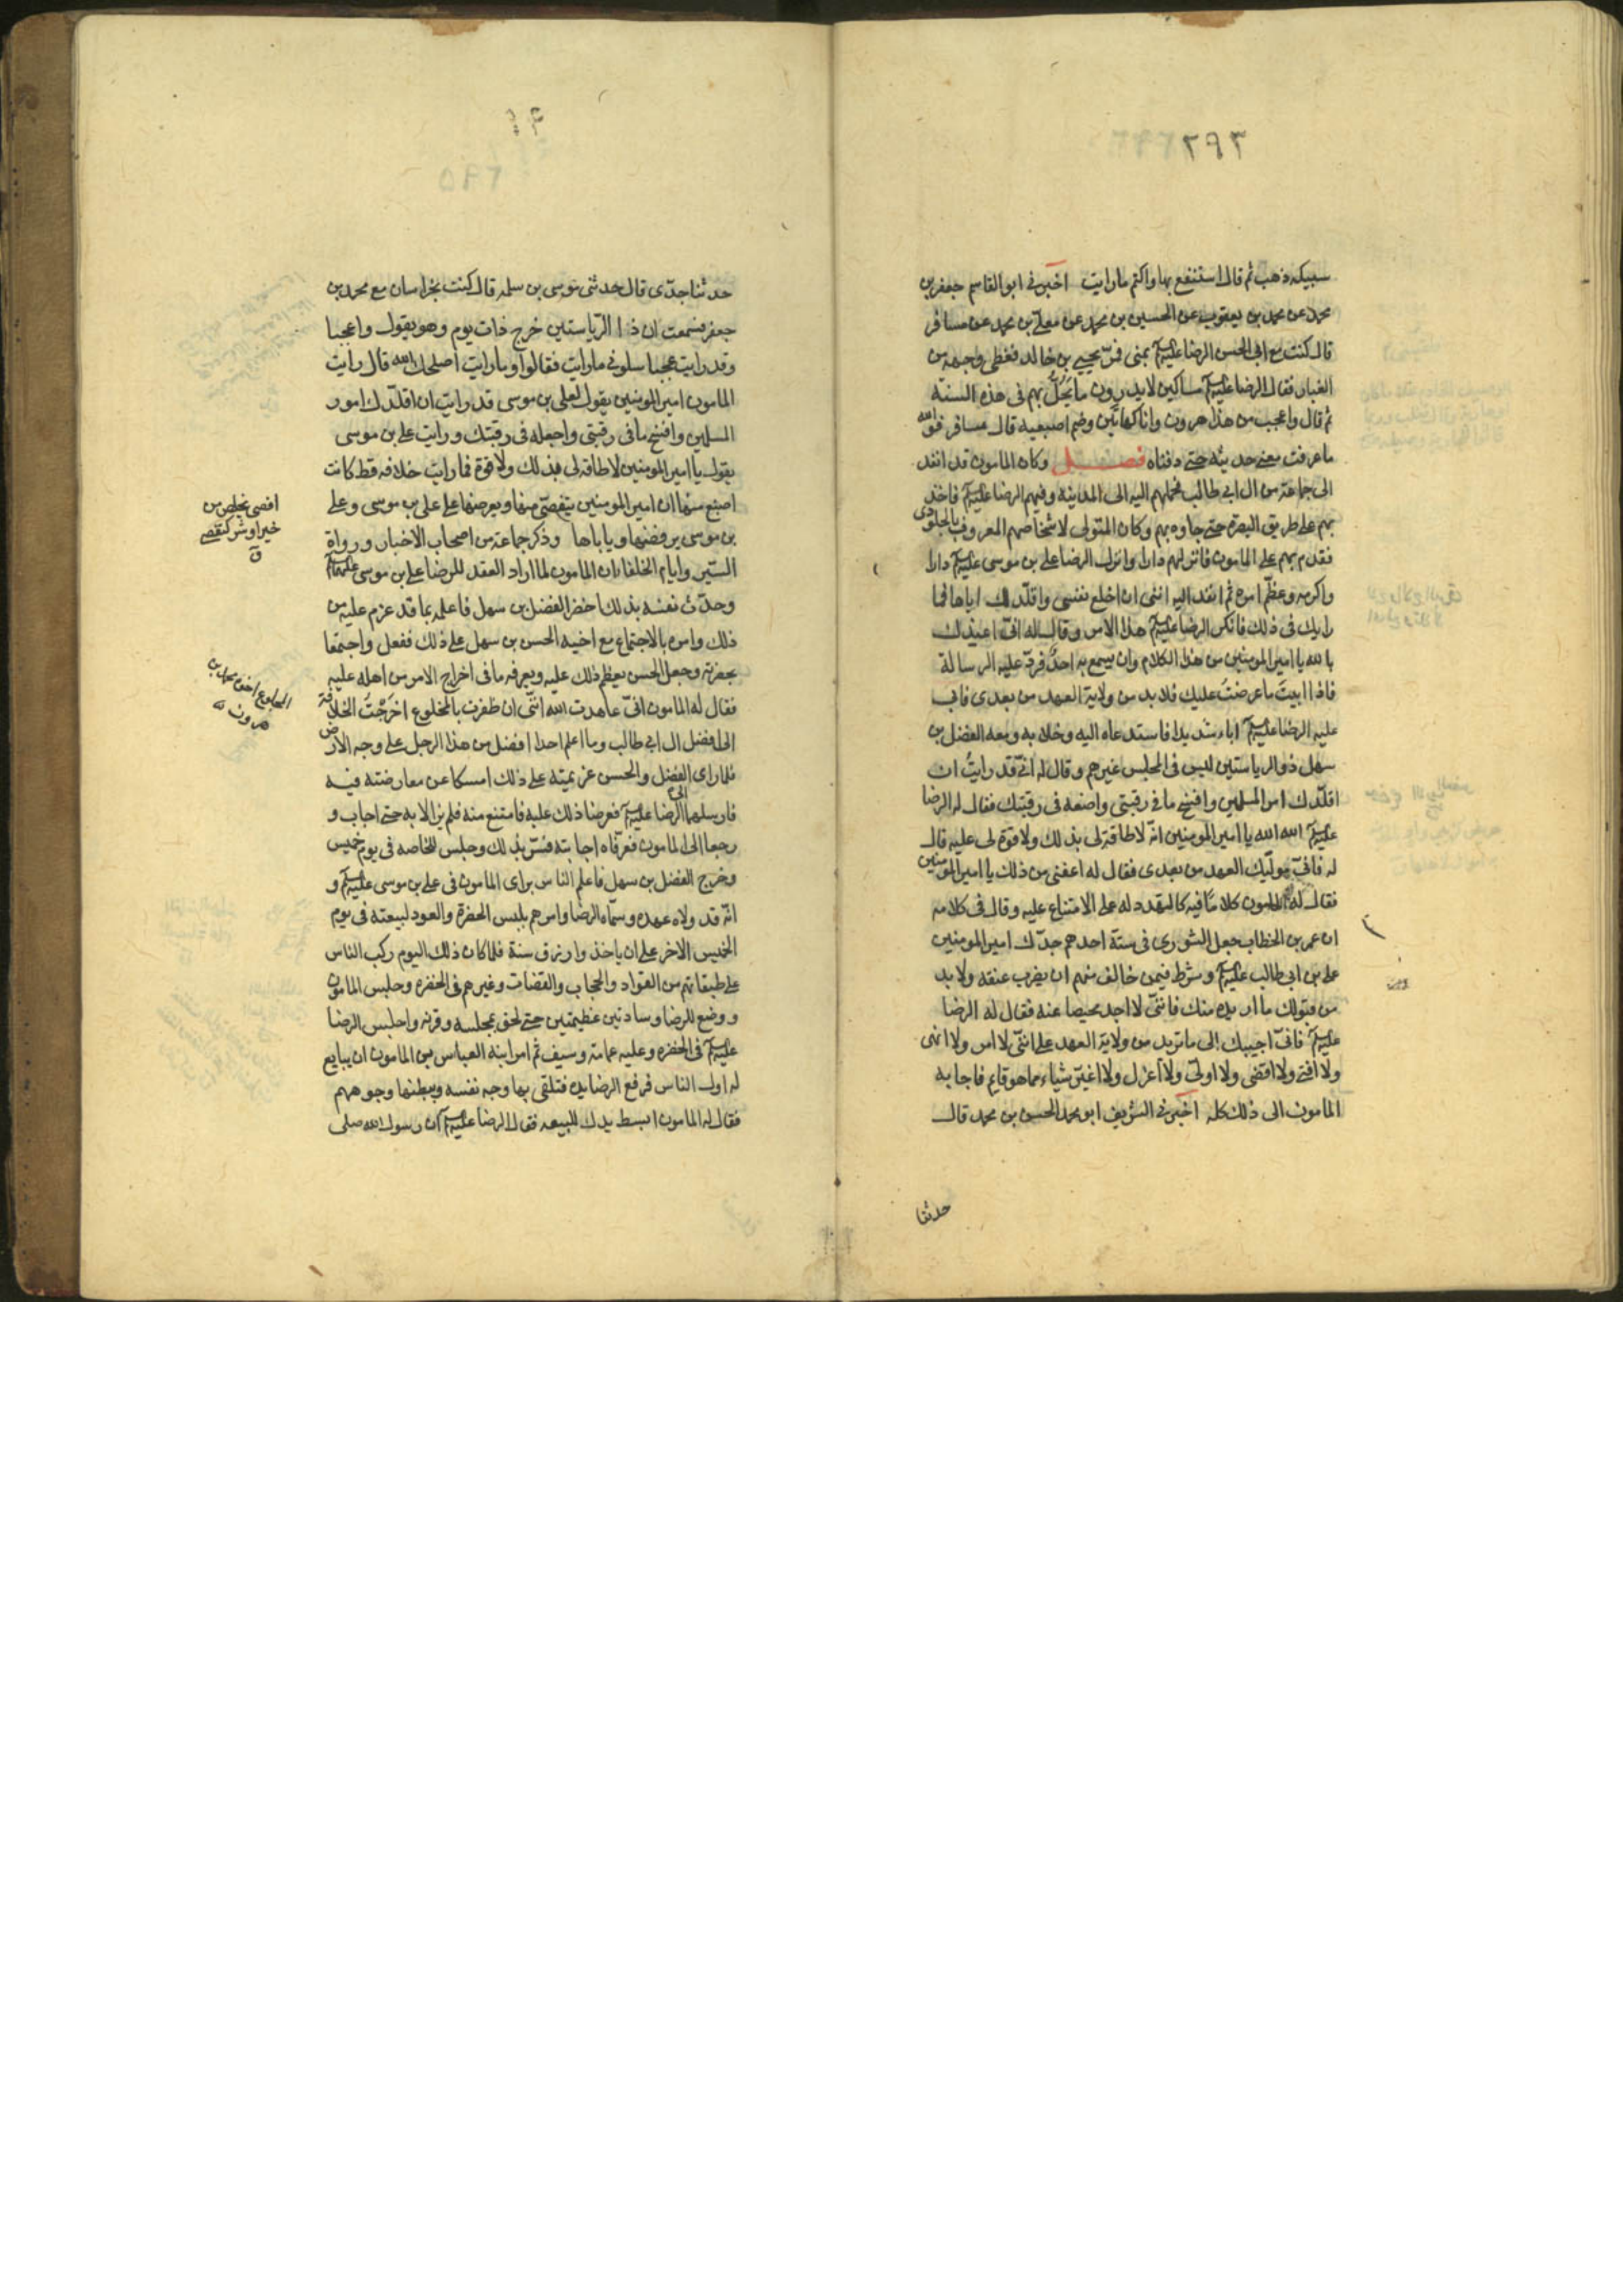 ٢٩٣
سبيكه ذهب ثم قال استنفع بها واكتم مارايت اخبرنى ابو القاسم جعفر بن
محمد عن محمد بن يعقوب عن الحسين بن محمد عن معلى بن محمد عن مسافر
قال كنت مع ابى الحسن الرضا عليه السلم بمنى فمرّ يحيى بن خالد فغطى وجهه من
الغبار فقال الرضا عليه السلم مساكين لا يدرون ما يَحُلُّ بهم فى هذه السنة
ثم قال واعجب من هذا هرون وانا كهاتين وضم اصبعيه قال مسافر فوالله
ما عرفت معنى حديثه حتى دفناه فصل وكان المامون قد انفذ
الى جماعة من ال ابى طالب فحملهم اليه الى المدينه وفيهم الرضا عليه السلم فاخذ
بهم على طريق البصرة حتى جاوه بهم وكان المتولى لاشخاصهم المعروف بالجلودى
فقدم بهم على المامون فانزلهم دارا وانزل الرضا على بن موسى عليه السلم دارا
واكرمه وعظّم امره ثم انفذ اليه اننى ان اخلع نفسى واقلّدك اياها فما
رايك فى ذلك فانكر الرضا عليه السلم هذا الامر وقال له انّى اعيذك
بالله يا امير المومنين من هذا الكلام وان يسمع به احدٌ فردّ عليه الرسالة
فاذا ابيتَ ما عرضتُ عليك فلا بد من ولاية العهد من بعدى فابى
عليه الرضا عليه السلم اباء شديدا فاستدعاه اليه وخلا به ومعه الفضل بن
سهل ذو الرياستين ليس فى المجلس غيرهم وقال له انّى قد رايتُ ان
اقلّدك امر المسلمين وافسخ ما فى رقبتى واضعه فى رقبتك فقال له الرضا
عليه السلم الله الله يا امير المومنين انّه لا طاقة لى بذلك ولا قوة لى عليه قال
له فانّى موليك العهد من بعدى فقال له اعفنى من ذلك يا امير المومنين
فقال له المامون كلاما فيه كالتهدد له على الامتناع عليه وقال فى كلامه
ان عمر بن الخطاب جعل الشورى فى ستة احدهم جدّك امير المومنين
على بن ابى طالب عليه السلم وشرط فيمن خالف منهم ان يضرب عنقه ولا بد
من قبولك ما اريده منك فانّنى لا اجد محيصا عنه فقال له الرضا
عليه السلم فانّى اجيبك الى ما تريد من ولاية العهد على انّنى لا امر ولا انهى
ولا افتى ولا اقضى ولا اولّى ولا اعزل ولا اغيّر شياء مما هو قايم فاجابه
المامون الى ذلك كله اخبرنى الشريف ابو محمد الحسن بن محمد قال
حدثنا
حدثنا جدّى قال حدثنى موسى بن سلمه قال كنت بخراسان مع محمد بن
جعفر فسمعت ان ذا الرّياستين خرج ذات يوم وهو يقول واعجبا
وقد رايت عجبا سلونى ما رايت فقالوا وما رايت اصلحك الله قال رايت
المامون امير المومنين يقول لعلى بن موسى قد رايت ان اقلّدك امور
المسلمين وافسخ ما فى رقبتى واجعله فى رقبتك ورايت على بن موسى
يقول يا امير المومنين لا طاقه لى بذلك ولا قوة فما رايت خلافه قط كانت
اضيع منها ان امير المومنين يتفصّى منها ويعرضها على على بن موسى وعلى
بن موسى يرفضها ويا باها وذكر جماعة من اصحاب الاخبار ورواة
السّير وايام الخلفا ان المامون لما اراد العقد للرضا على بن موسى عليهما السلم
وحدّث نفسه بذلك احضر الفضل بن سهل فاعلمه بما قد عزم عليه من
ذلك وامره بالاجتماع مع اخيه الحسن بن سهل على ذلك ففعل واجتمعا
بحضرته وجعل الحسن يعظم ذلك عليه ويعرفه ما فى اخراج الامر من اهله عليه
فقال له المامون انّى عاهدت الله انّنى ان ظفرت بالمخلوع اخرَجْتُ الخلافة
الى افضل ال ابى طالب وما اعلم احدا افضل من هذا الرجل على وجه الارض
فلما راى الفضل والحسن عزيمته على ذلك امسكا عن معارضته فيه
فارسلهما الى الرضا عليه السلم فعرضا ذلك عليه فامتنع منه فلم يزالا به حتى اجاب و
رجعا الى المامون فعرّفاه اجابته فسّر بذلك وجلس للخاصه فى يوم خميس
وخرج الفضل بن سهل فاعلم الناس براى المامون فى على بن موسى عليه السلم و
انّه قد ولاه عهده وسمّاه الرضا وامرهم بلبس الخضرة والعود لبيعته فى يوم
الخميس الاخر على ان ياخذوا رزق سنة فلما كان ذلك اليوم ركب الناس
على طبقاتهم من القواد والحجاب والقضات وغيرهم فى الخضره وجلس المامون
ووضع للرضا وسادتين عظيمتين حتى لحق بمجلسه وفرشه واجلس الرضا
عليه السلم فى الخضره وعليه عمامة وسيف ثم امر ابنه العباس بن المامون ان يبايع
له اول الناس فرفع الرضا يده فتلقى بها وجه نفسه وببطنها وجوههم
فقال له المامون ابسط يدك للبيعه فقال الرضا عليه السلم ان رسول الله صلى
افصى تخلص من
خير او شر كتفصى
ق
المخلوع اخوه محمد بن
هرون